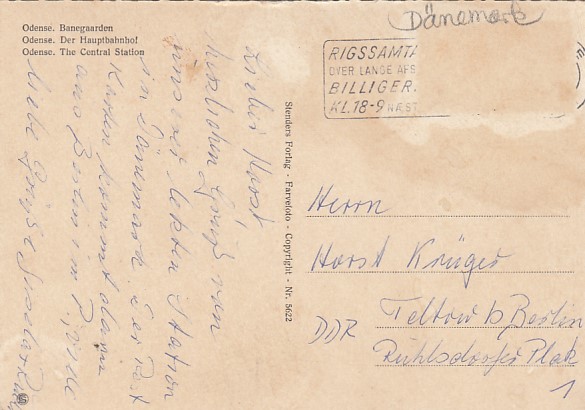 Dänemark
Odense. Banegaarden
Odense. Der Hauptbahnhof
Odense. The Central Station
RIGSSAMTA
OVER LANGE AFS
BILLIGER.
KL.18-9 NÆST
Lieber Horst,
herzlichen Gruß von
uns von letzten Station
in Dänemark. Der Rest
Karten kommt dann
aus Berlin im
Liebe Grüße
Stenders Forlag - Farvefoto - Copyright - Nr. 5622
Herrn
Horst Krüger
Teltow b Berlin
DDR
Ruhlsdorfer Platz
1